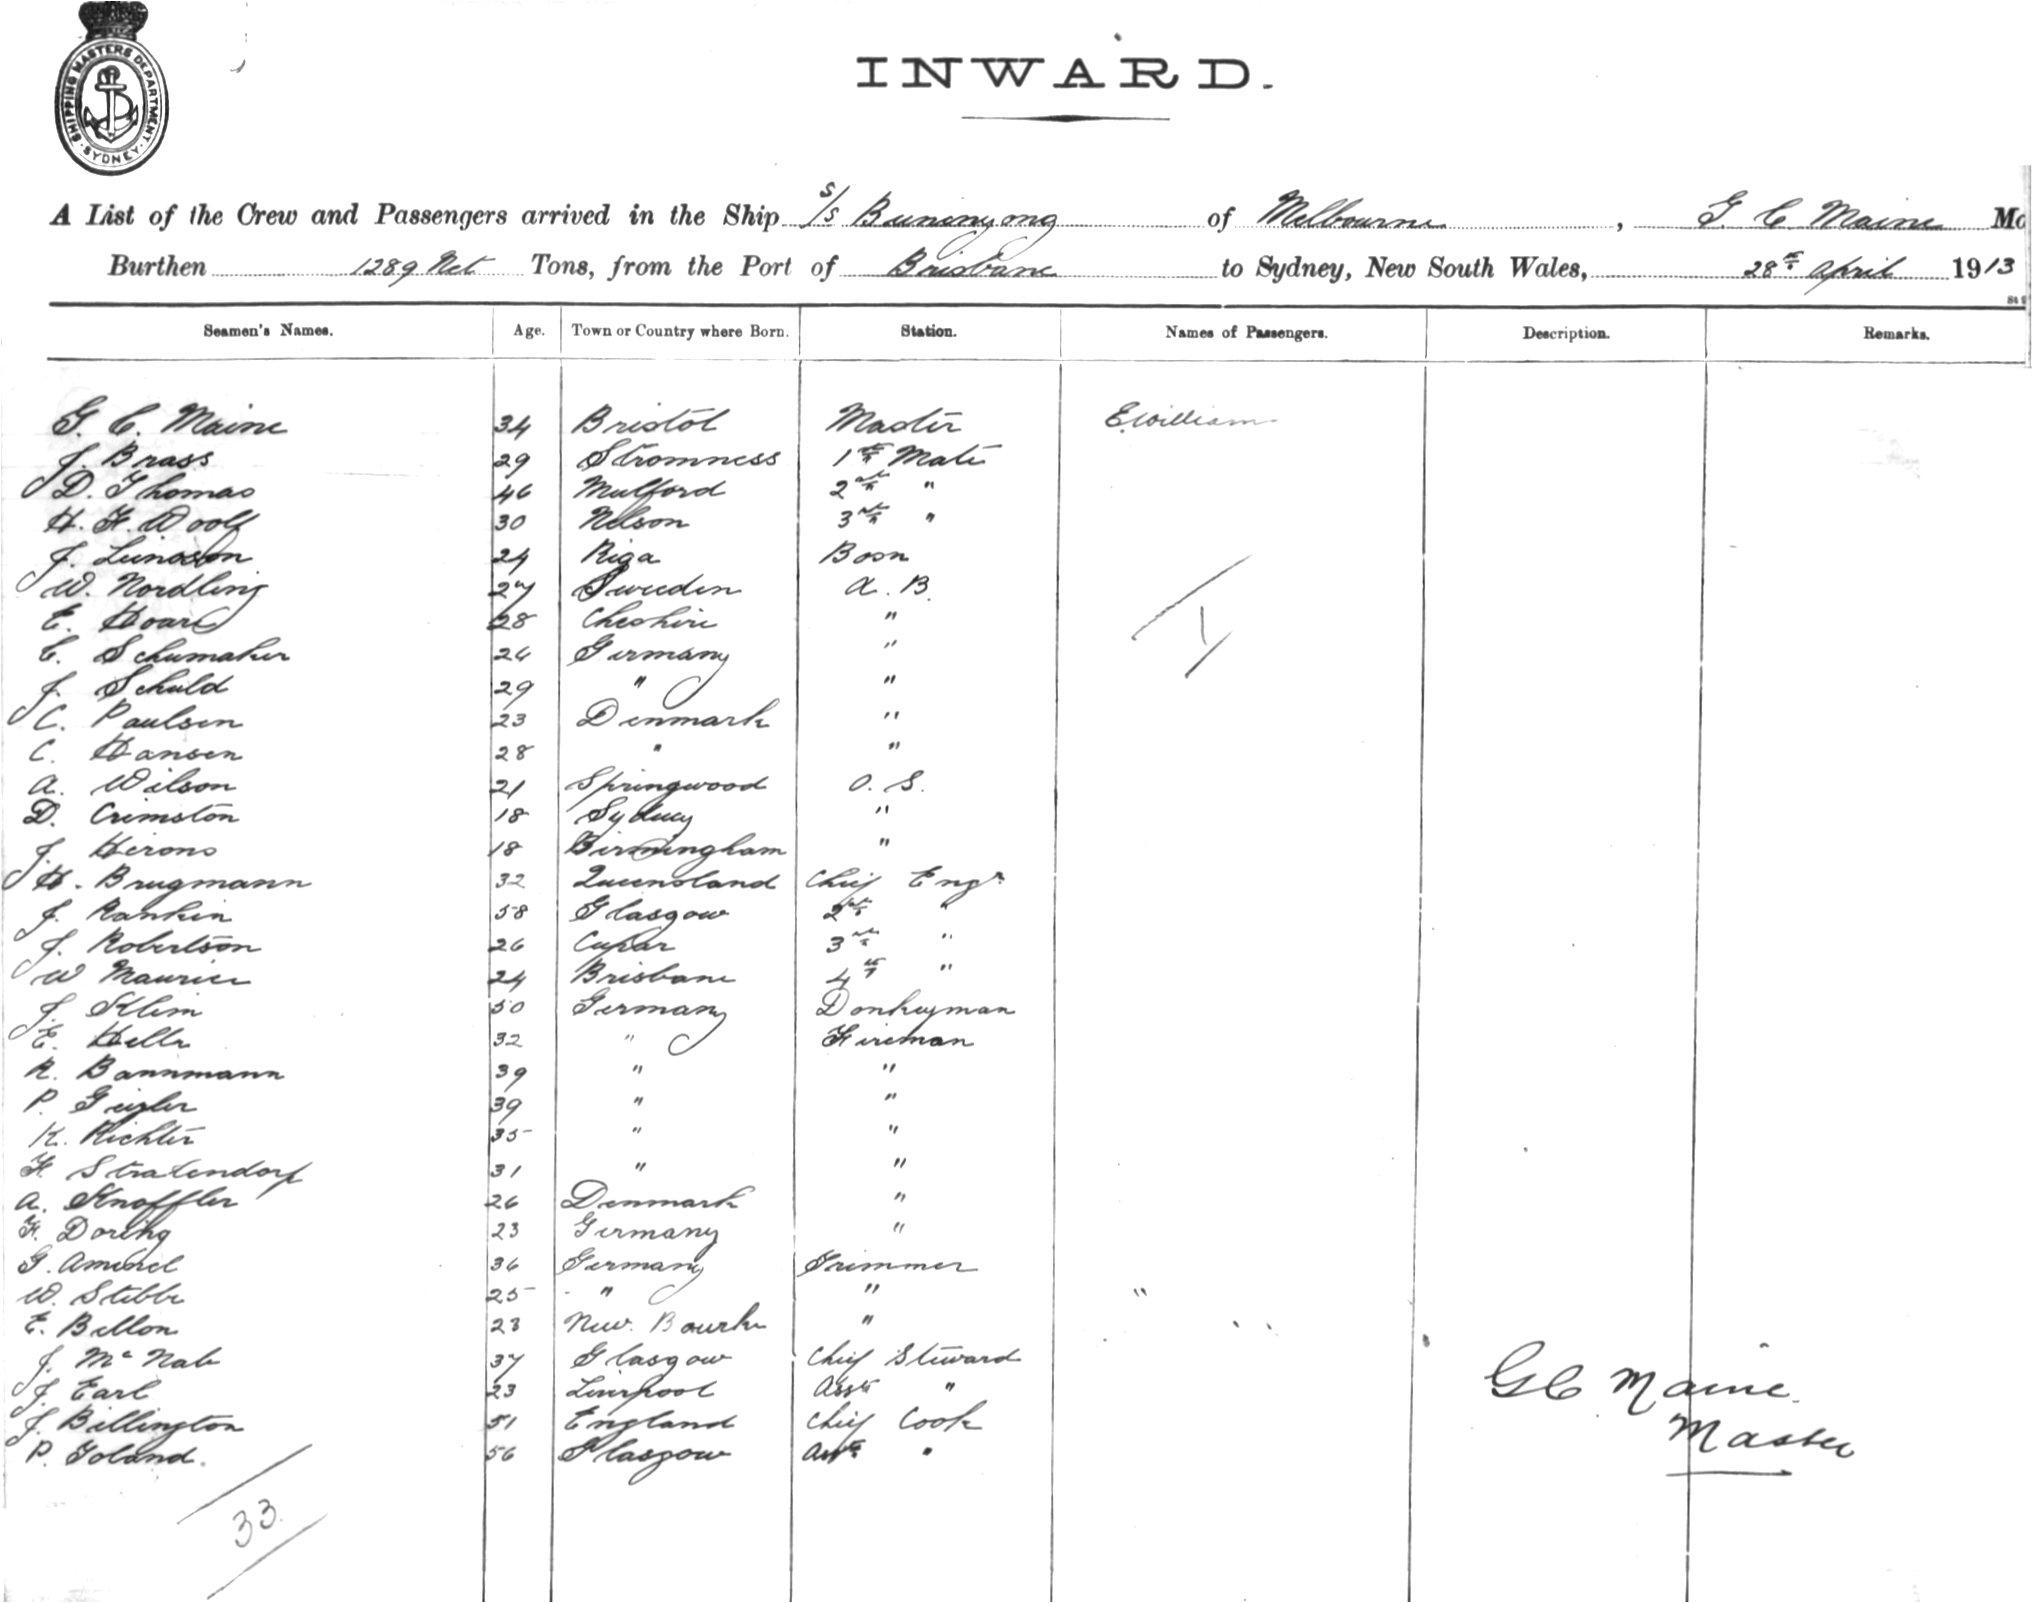 SHIPPING MASTERS DEPARTMENT · SYDNEY ·
INWARD.
A List of the Crew and Passengers arrived in the Ship S/S Buninyong of Melbourne, G. C. Maine
Burthen 1289 Net Tons, from the Port of Brisbane to Sydney, New South Wales, 28th April 1913
Seamen's Names. Age. Town or Country where Born. Station. Names of Passengers. Description. Remarks.
G. C. Maine 34 Bristol Master E. William
J. Brass 29 Stromness 1st Mate
D. Thomas 46 Mulford 2nd "
H. F. Woolf 30 Nelson 3rd "
J. 24 Riga Bosn
W. Nordling 27 Sweeden A. B.
E. Hoare 28 Cheshire "
C. Schumaker 26 Germany "
J. Schuld 29 " "
C. Paulsen 23 Denmark "
C. Hansen 28 " "
A. Wilson 21 Springwood O. S.
D. Crimston 18 Sydney "
J. Herons 18 Birmingham "
H. Brugmann 32 Queensland Chief Engr
J. Rankin 58 Glasgow 2nd "
J. Robertson 26 Cupar 3rd "
W Maurice 24 Brisbane 4th "
J. Klem 50 Germany Donkeyman
E. Helle 32 " Fireman
R. Bannmann 39 " "
P. Geizler 39 " "
K. Richter 35 " "
F. Stratendorf 31 " "
A. Knoffler 26 Denmark "
F. Doring 23 Germany "
G. 36 Germany Trimmer
W. Stebbe 25 " "
E. Billon 23 New. Bourke "
J. McNab 37 Glasgow Chief Steward
J. Earl 23 Liverpool Asst "
J. Billington 51 England Chief Cook
P. Toland. 56 Glasgow Asst "
1
33
G C Maine
Master